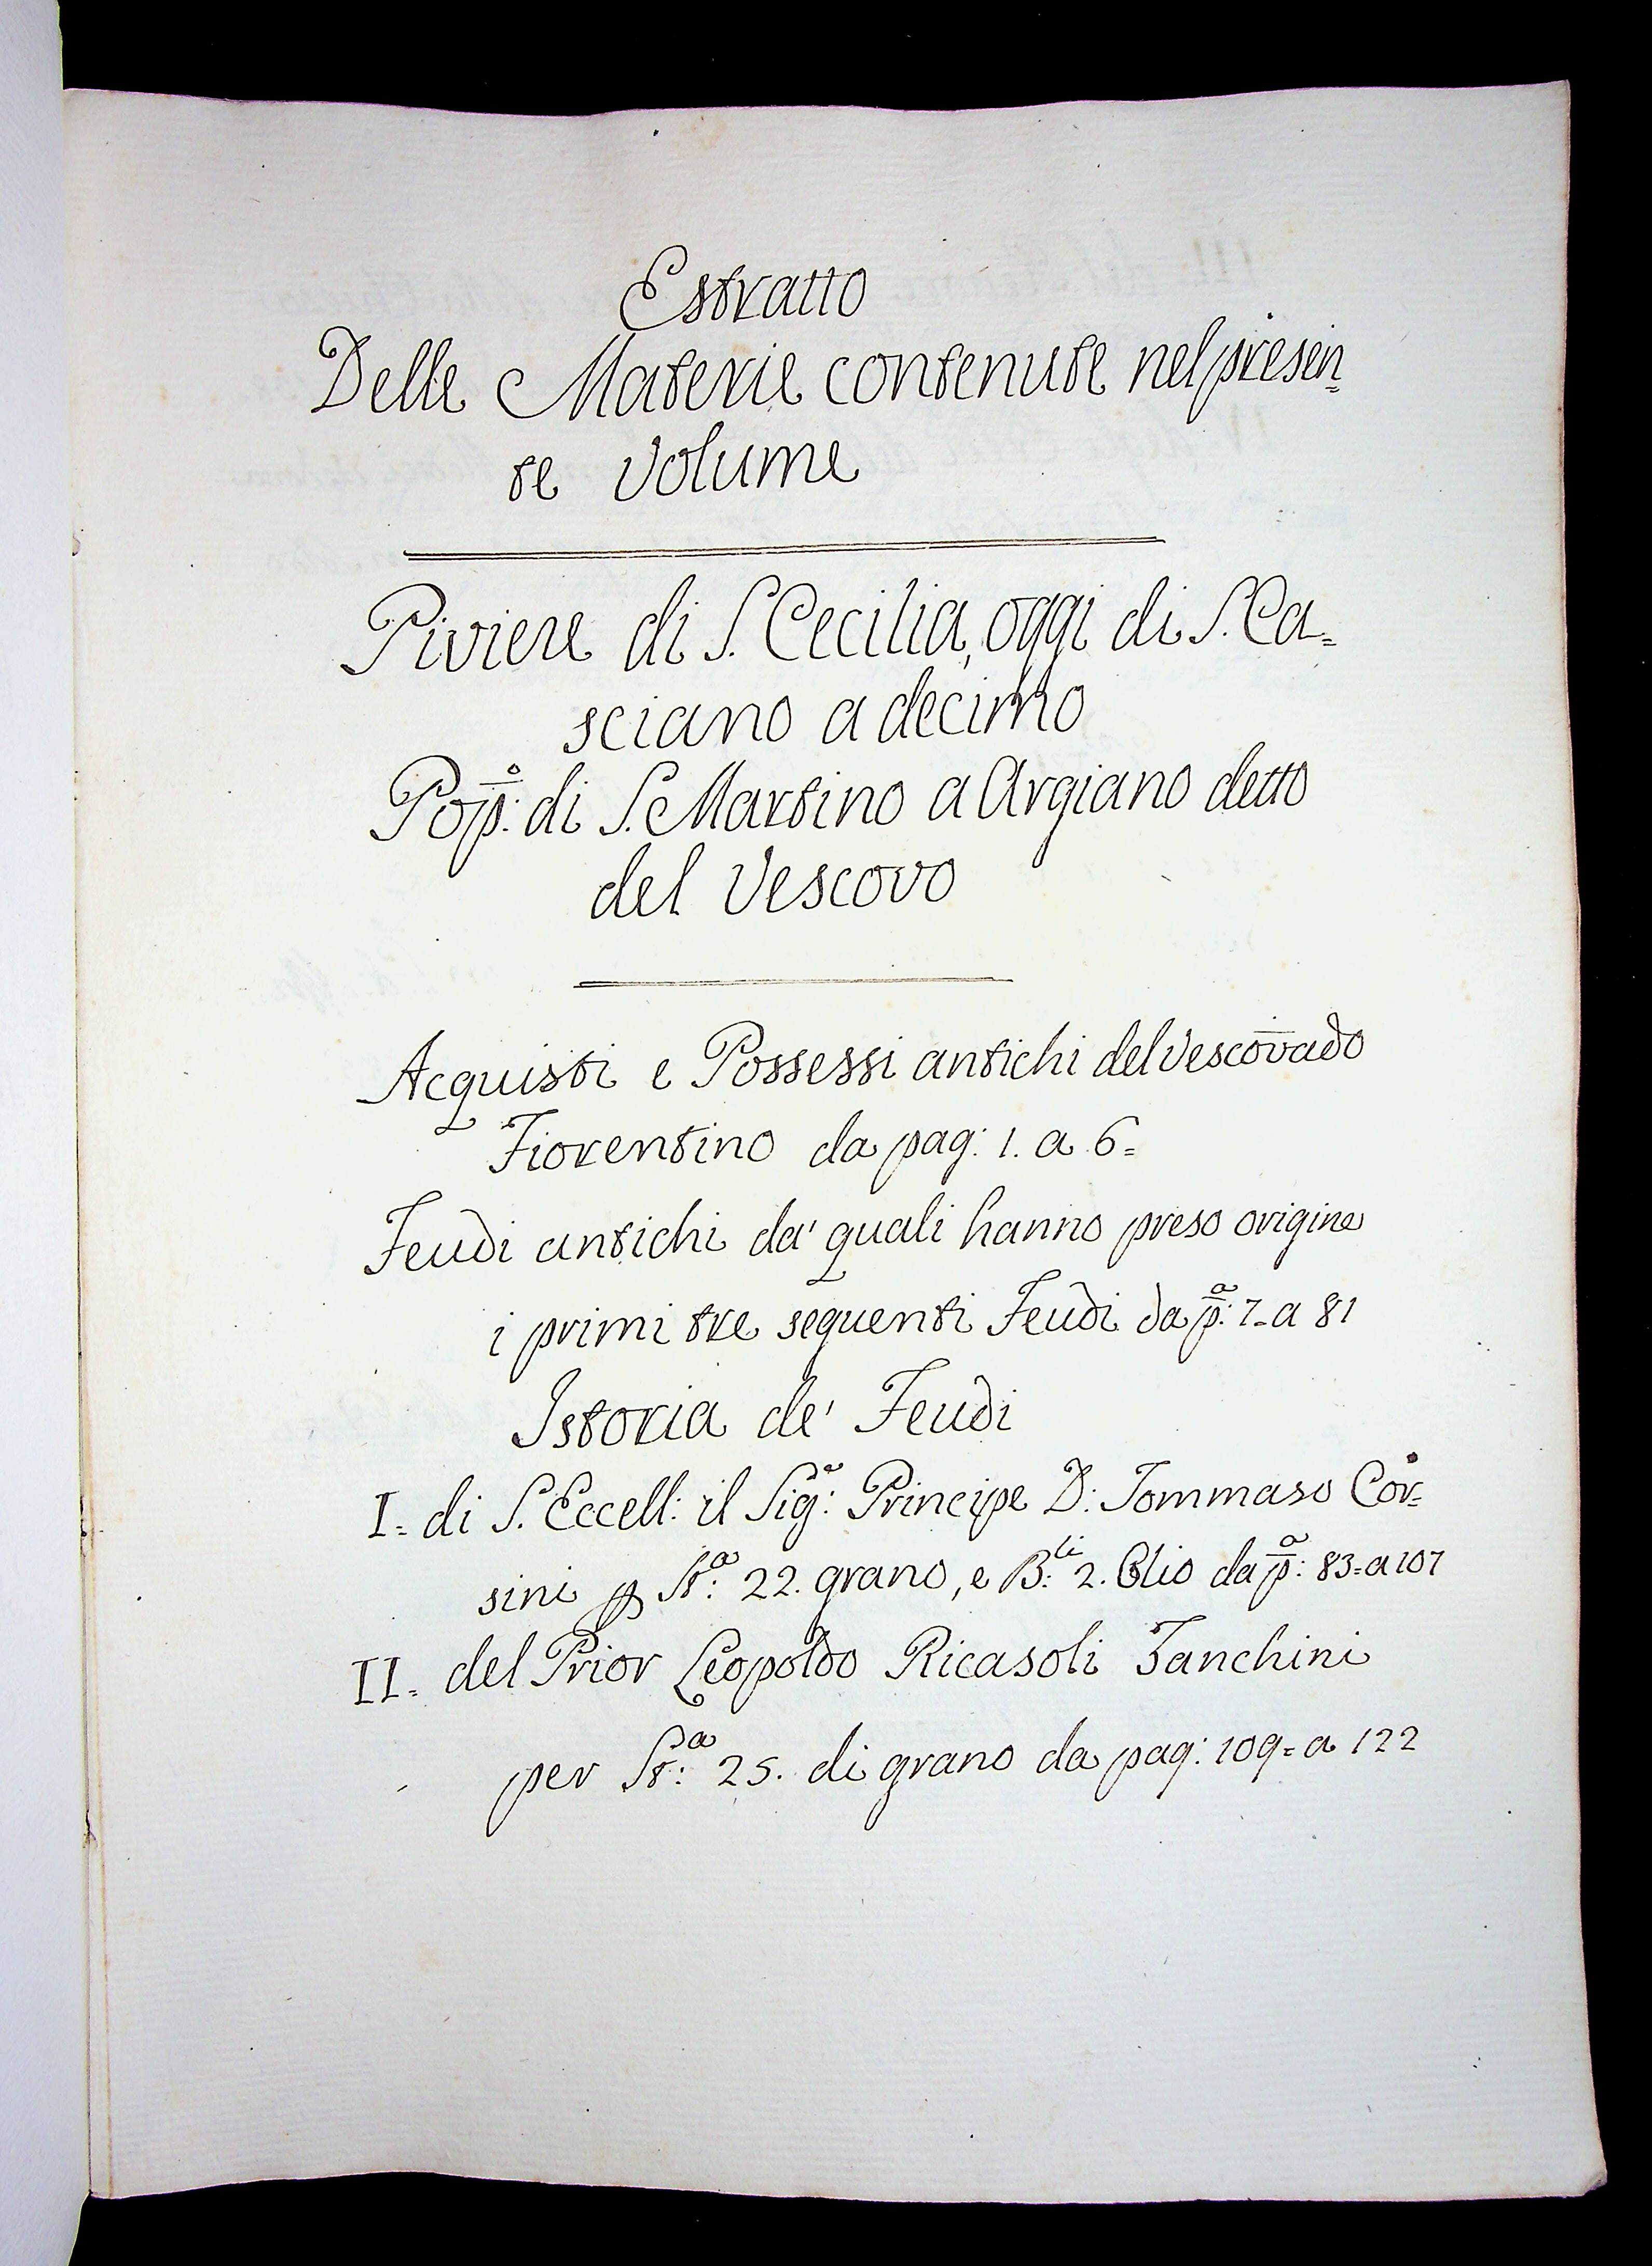 Estratto
Delle Materie contenute nel presen=
te volume
Piviere di S. Cecilia, oggi di S. Ca=
sciano a decimo
Pop:º di S. Martino a Argiano detto
del Vescovo
Acquisti e Possessi antichi del Vescovado
Fiorentino da pag: 1. a 6=
Feudi antichi da' quali hanno preso origine
i primi tre seguenti Feudi da p:ª 7= a 81
Istoria de' Feudi
I= di S. Eccell: il Sig:ͬ Principe D: Tommaso Cor=
sini p St:ª 22. grano, e B:ˡⁱ 2. Olio da p:ª 83= a 107
II= del Prior Leopoldo Ricasoli Zanchini
per St:ª 25. di grano da pag: 109= a 122